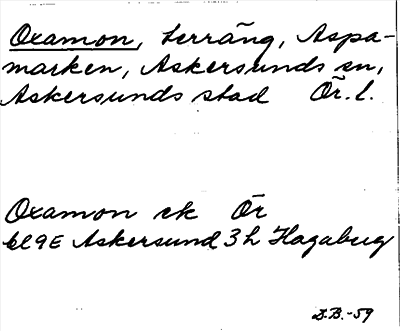 Oxamon, terräng, Aspa-
marken, Askersunds sn,
Askersunds stad Ör. l.
Oxamon ek Ör
bl 9E Askersund 3h Hagaberg
D.B.-59